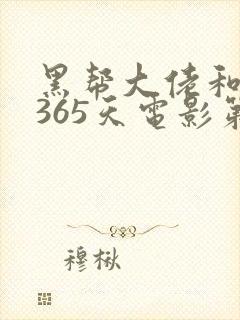 黑帮大佬和
365天电影第
穆楸